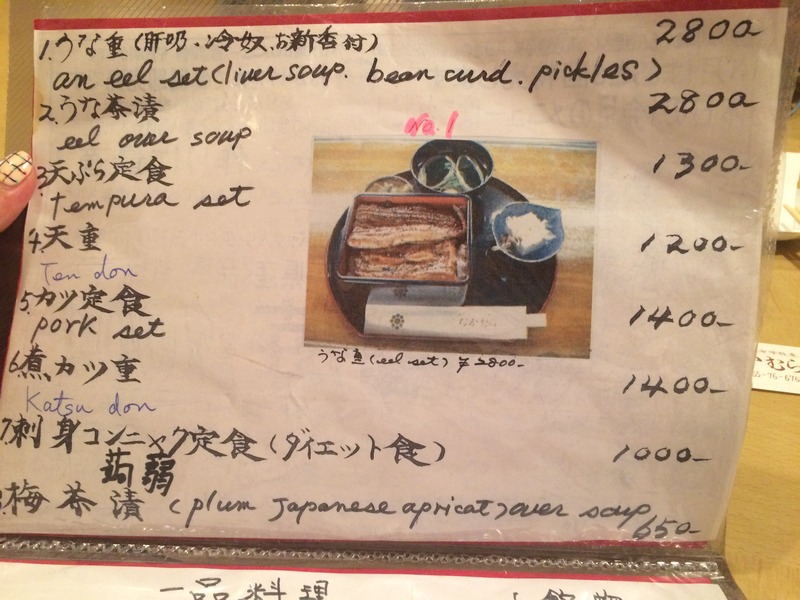 1.うな重(肝吸・冷奴、お新香付) 2800-
an eel set(liver soup. bean curd. pickles)
2.うな茶漬 2800-
eel over soup
No.1
3天ぷら定食 1300-
tempura set
4.天重 1200-
Ten don
5.カツ定食 1400-
pork set
うな重(eel set) ¥2800-
6.煮カツ重 1400-
Katsu don
7刺身コンニャク定食(ダイエット食) 1000-
蒟蒻
8.梅茶漬(plum Japanese apricat)over soup 650-
一品料理
むら